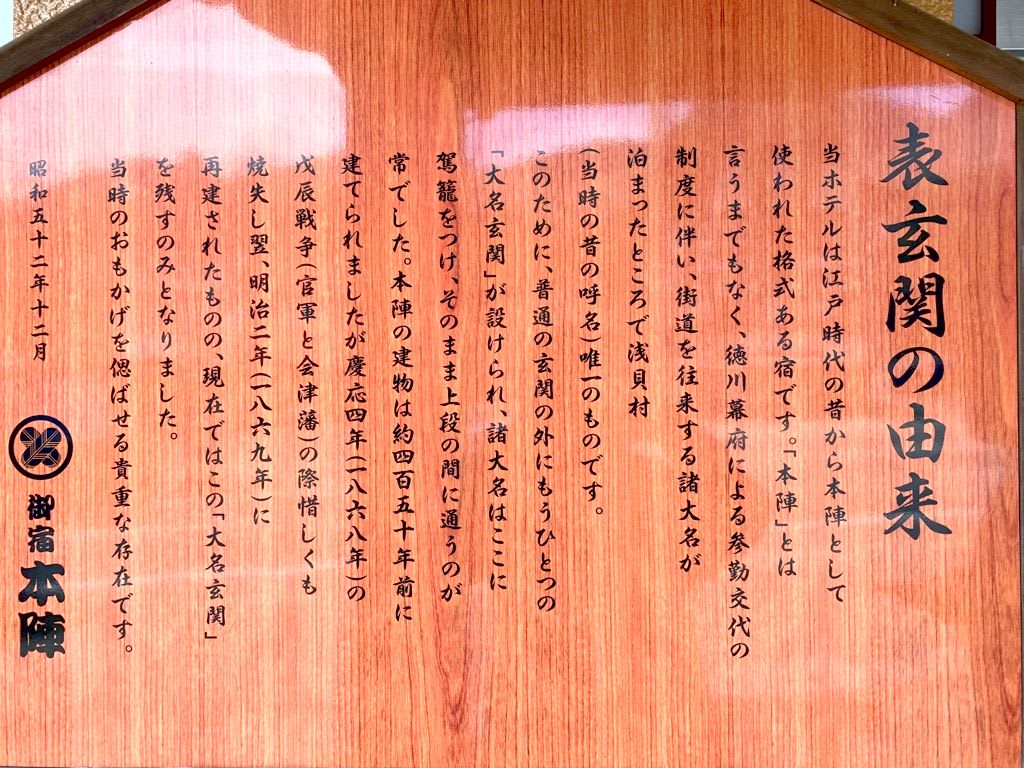 表玄関の由来
当ホテルは江戸時代の昔から本陣として
使われた格式ある宿です。「本陣」とは
言うまでもなく、徳川幕府による参勤交代の
制度に伴い、街道を往来する諸大名が
泊まったところで浅貝村
(当時の昔の呼名)唯一のものです。
このために、普通の玄関の外にもうひとつの
「大名玄関」が設けられ、諸大名はここに
駕籠をつけ、そのまま上段の間に通うのが
常でした。本陣の建物は約四百五十年前に
建てられましたが慶応四年(一八六八年)の
戊辰戦争(官軍と会津藩)の際惜しくも
焼失し翌、明治二年(一八六九年)に
再建されたものの、現在ではこの「大名玄関」
を残すのみとなりました。
当時のおもかげを偲ばせる貴重な存在です。
昭和五十二年十二月
御宿本陣